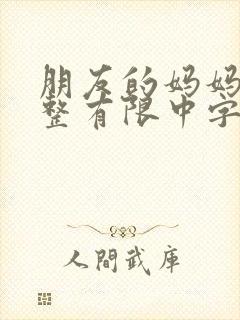 朋友的妈妈
整有限中字
人間武庫